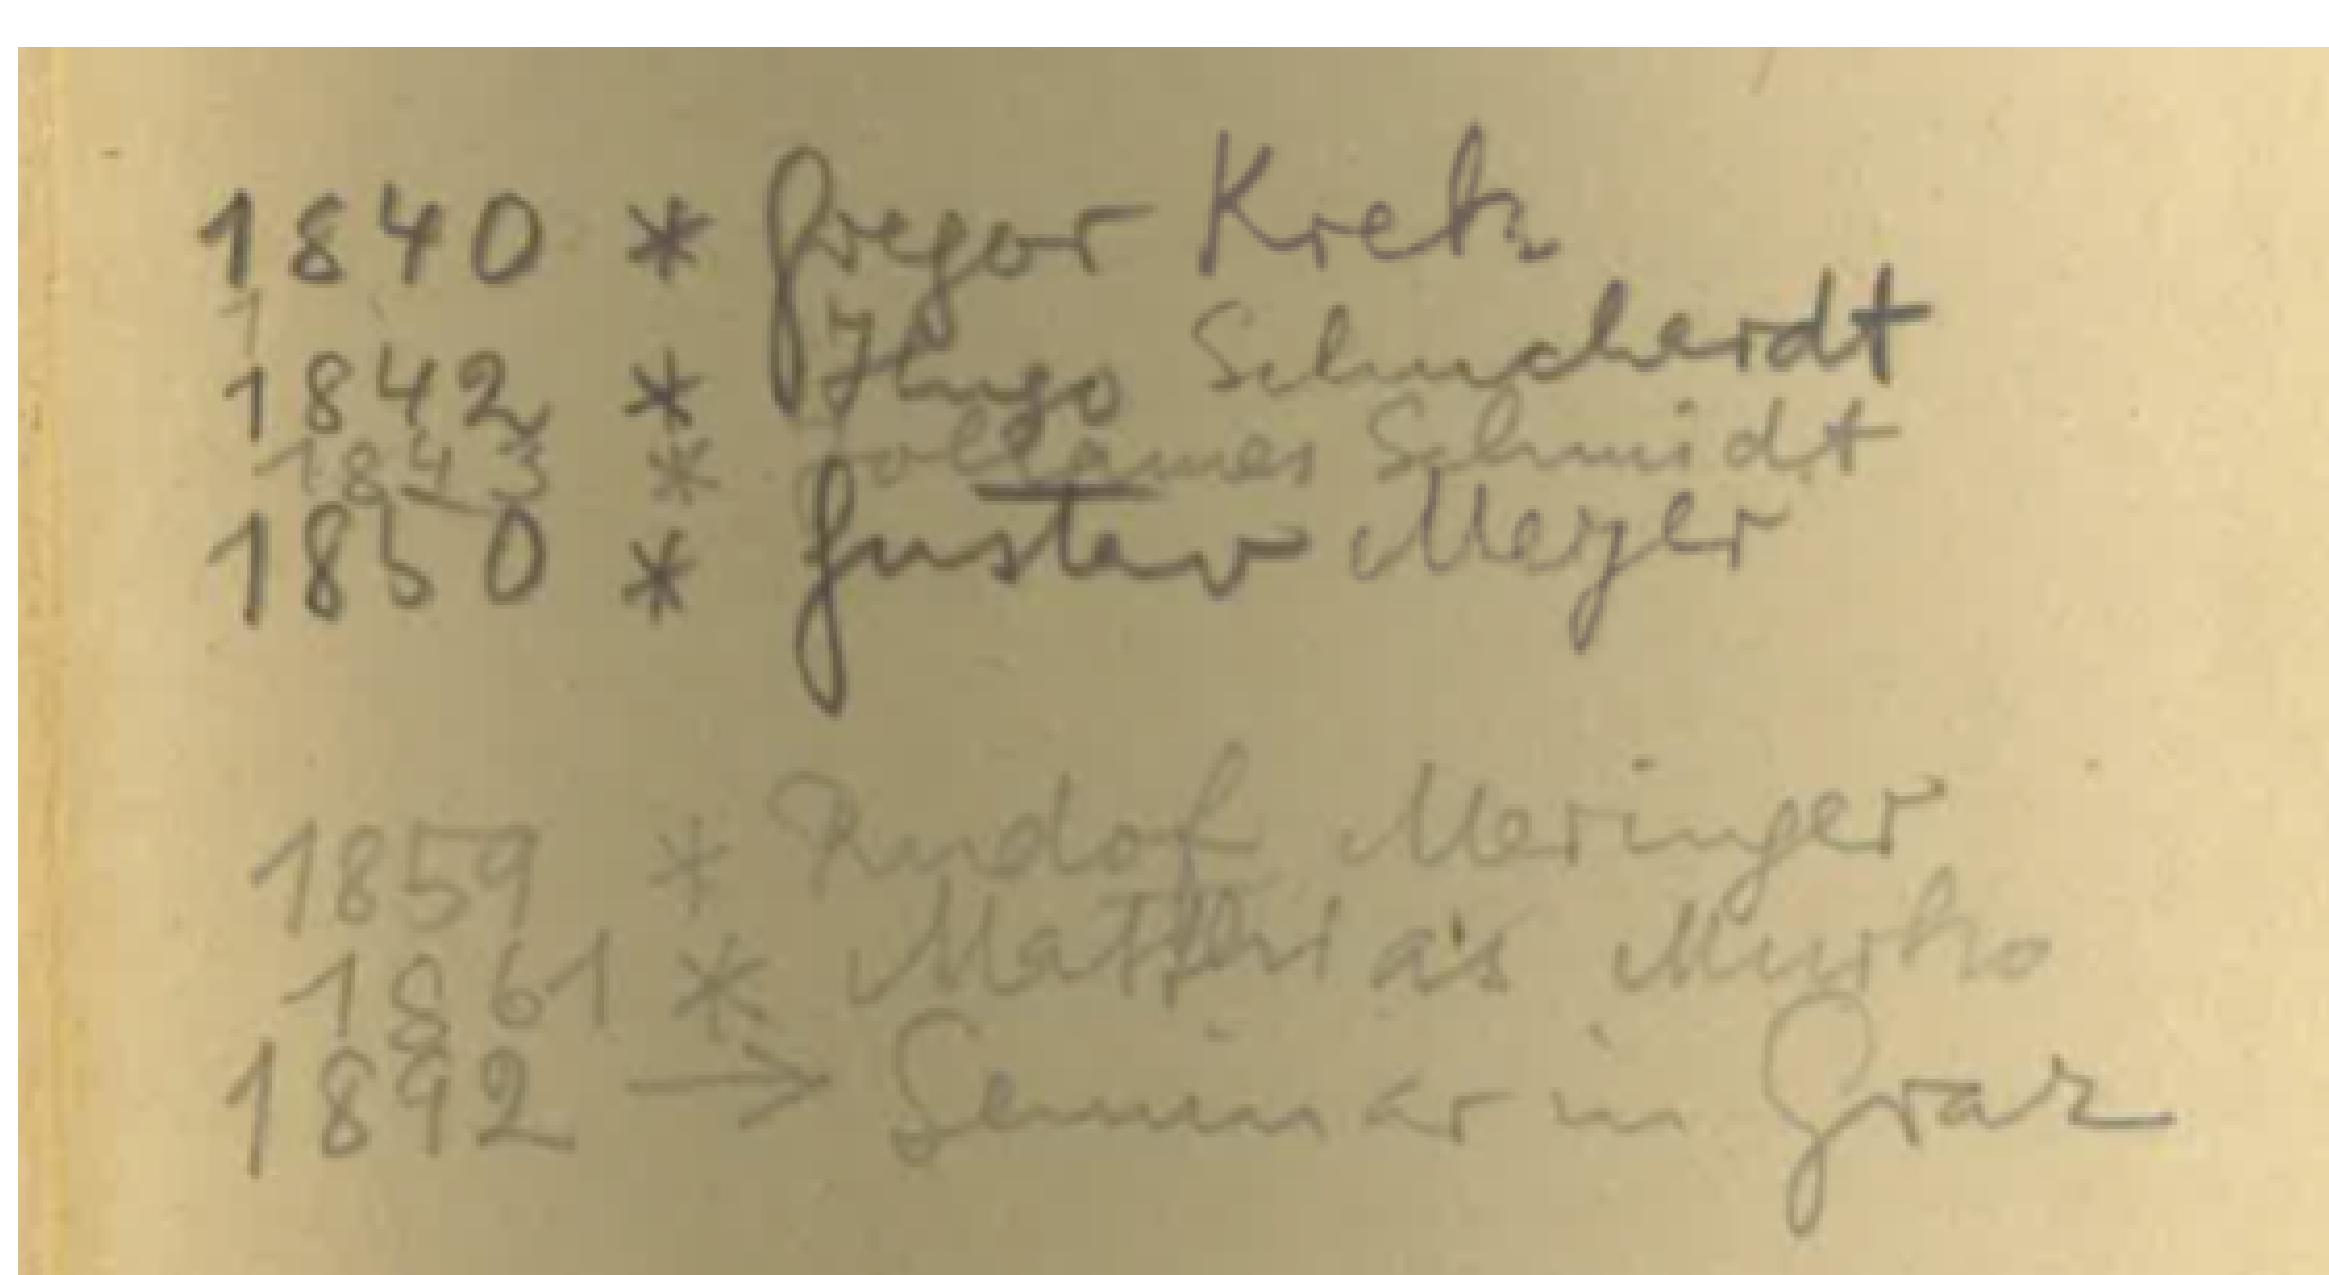 1840 * Gregor Krek
1
1842 * Hugo Schuchardt
1843 * Johannes Schmidt
1850 * Gustav Meyer
1859 * Rudolf Meringer
1861 * Matthias Murko
1892 → Seminar in Graz